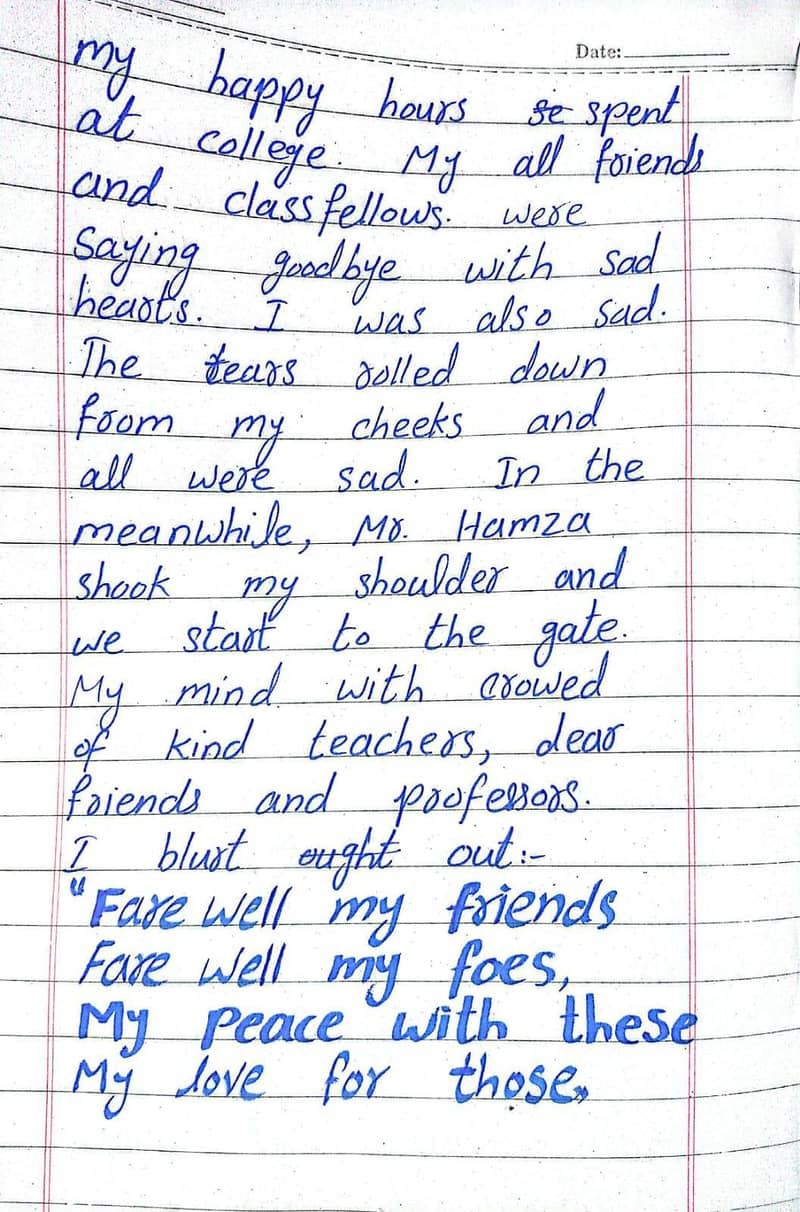 Date:
my happy hours se spent
at college. My all friends
and classfellows. were
Saying goodbye with sad
hearts. I was also sad.
The tears rolled down
from my cheeks and
all were sad. In the
meanwhile, Mr. Hamza
shook my shoulder and
we start to the gate.
My mind with crowed
of kind teachers, dear
friends and professors.
I blurt ought out:-
"Fare well my friends
Fare well my foes,
My peace with these
My love for those"